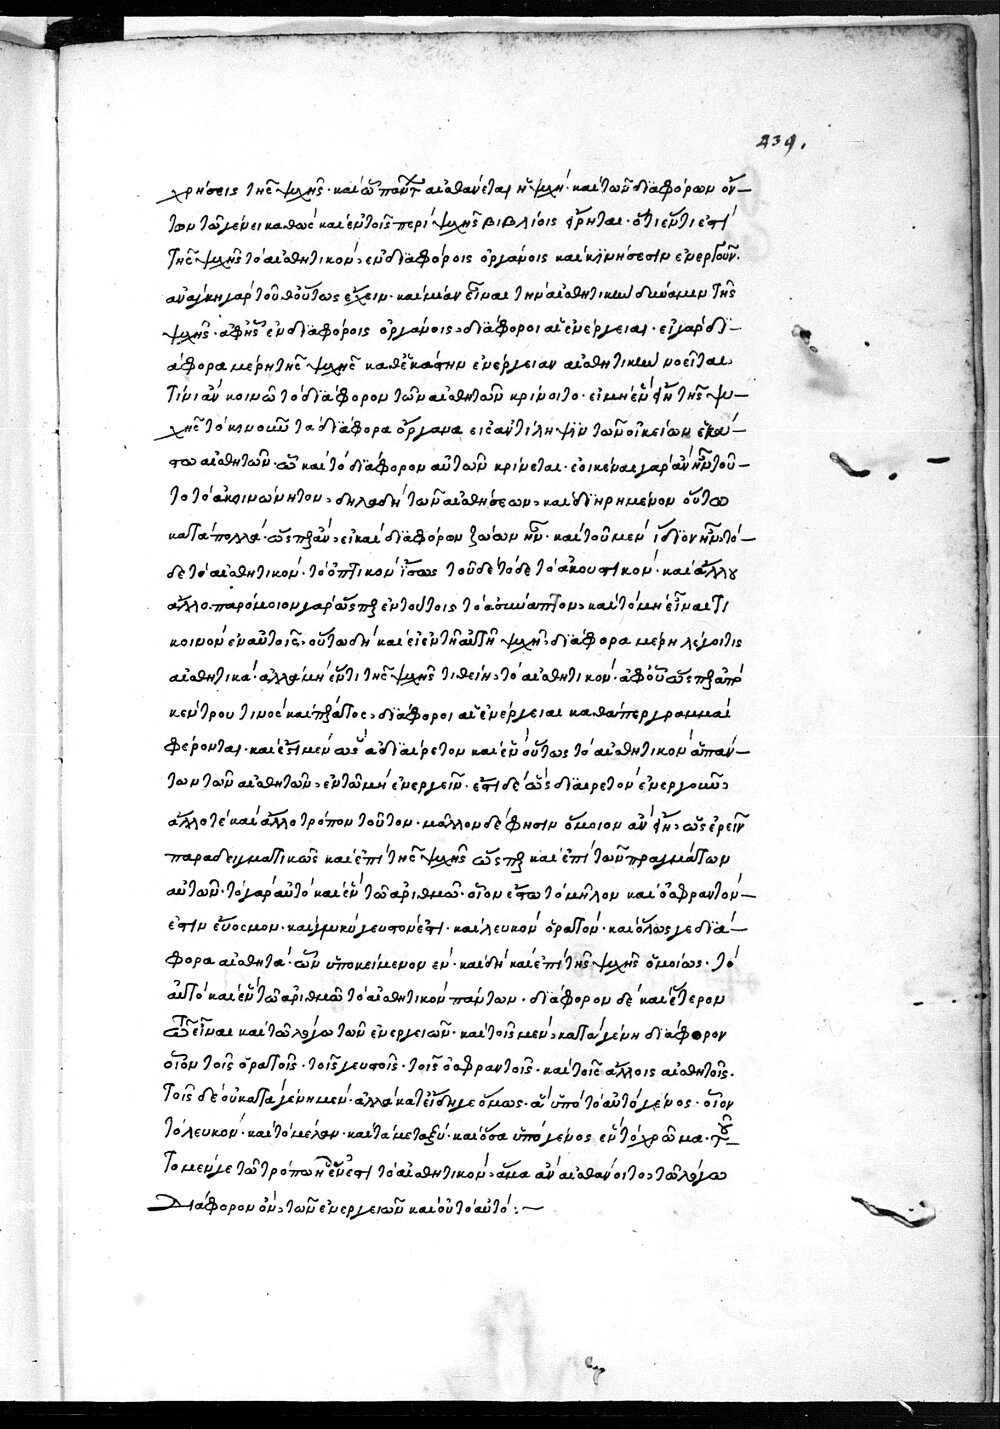 239.
χρήσεις τῆς ψυχῆς· καὶ ᾧ πάντ αἰσθάνεται ἡ ψυχή· καὶ τῶν διαφόρων ὄν–
των τῷ γένει καθὼς καὶ ἐν τοῖς περὶ ψυχῆς βιβλίοις εἴρηται· ὅτι ἕν τι ἐστὶ
τῆς ψυχῆς τὸ αἰσθητικὸν, ἐν διαφόροις ὀργάνοις καὶ κινήσεσιν ἐνεργοῦν.
ἀνάγκη γὰρ τοῦθ οὕτως ἔχειν· καὶ μίαν εἶναι τὴν αἰσθητικὴν δύναμιν τῆς
ψυχῆς· ἀφ ἧς ἐν διαφόροις ὀργάνοις, διάφοροι αἱ ἐνέργειαι· εἰ γὰρ δι–
άφορα μέρη τῆς ψυχῆς καθ ἑκάστην ἐνέργειαν αἰσθητικὴν νοεῖται
τίνι ἂν κοινῷ τὸ διάφορον τῶν αἰσθητῶν κρίνοιτο· εἰ μὴ ἓν εἴη τῆς ψυ–
χῆς τὸ κινοῦν τὰ διάφορα ὄργανα εἰς ἀντίληψιν τῶν οἰκείων ἑκά–
στω αἰσθητῶν· ᾧ καὶ τὸ διάφορον αὐτῶν κρίνεται· ἐοικέναι γὰρ ἂν ἦν τοῦ–
το τὸ ἀκοινώνητον, δηλαδὴ τῶν αἰσθήσεων, καὶ διῃρημένον οὕτω
κατὰ πολλὰ· ὥσπερ ἂν, εἰ καὶ διαφόρων ζώων ἦν· καὶ τοῦ μὲν ἴδιον ἦν τό–
δε τὸ αἰσθητικόν· τὸ ὀπτικὸν ἴσως τοῦδε τόδε τὸ ἀκουστικόν· καὶ ἄλλου
ἄλλο. παρόμοιον γὰρ ὥσπερ ἐν τούτοις τὸ ἀσυνάπτον, καὶ τὸ μὴ εἶναί τι
κοινὸν ἐν αὐτοῖς, οὕτω δὴ καὶ εἰ ἐν τῇ αὐτῇ ψυχῇ, διάφορα μέρη λέγοι τις
αἰσθητικὰ· ἀλλὰ μὴ ἕν τι τῆς ψυχῆς τιθείη, τὸ αἰσθητικόν· ἀφ οὗ ὥσπερ ἀπὸ
κέντρου τινὸς καὶ πέρατος, διάφοροι αἱ ἐνέργειαι καθάπερ γραμμαὶ
φέρονται· καὶ ἔστι μὲν ὡς ἀδιαίρετον καὶ ἓν οὕτως τὸ αἰσθητικὸν ἁπάν–
των τῶν αἰσθητῶν, ἐν τῷ μὴ ἐνεργεῖν· ἔστι δὲ ὡς διαιρετὸν ἐνεργοῦν,
ἄλλοτε κατ ἄλλο τρόπον τοῦτον· μᾶλλον δέ φησιν ὅμοιον ἂν εἴη, ὡς ἐρεῖν
παραδειγματικῶς καὶ ἐπὶ τῆς ψυχῆς ὥσπερ καὶ ἐπὶ τῶν πραγμάτων
αὐτῶν· τὸ γὰρ αὐτὸ καὶ ἓν τῷ ἀριθμῷ· οἷον ἔστω τὸ μῆλον καὶ ὀσφραντόν–
ἐστιν εὔοσμον· καὶ γλυκὺ γευστόν ἐστι· καὶ λευκὸν ὁρατόν· καὶ ὅλως γε διά–
φορα αἰσθητά· ὧν ὑποκείμενον ἕν· καὶ δὴ καὶ ἐπὶ τῆς ψυχῆς ὁμοίως· τὸ
αὐτὸ καὶ ἓν τῷ ἀριθμῷ τὸ αἰσθητικὸν πάντων· διάφορον δὲ καὶ ἕτερον
τῷ εἶναι καὶ τῷ λόγω τῶν ἐνεργειῶν· καὶ τοῖς μὲν, κατὰ γένη διάφορον
οἷον τοῖς ὁρατοῖς· τοῖς γευστοῖς· τοῖς ὀσφραντοῖς· καὶ τοῖς ἄλλοις αἰσθητοῖς·
τοῖς δὲ οὐ κατὰ γένη μὲν· ἀλλὰ κατ εἴδη γε ὅμως· ἃ ὑπὸ τὸ αὐτὸ γένος· οἷον
τὸ λευκὸν· καὶ τὸ μέλαν· καὶ τὰ μεταξύ· καὶ ὅσα ὑπὸ γένος ἓν τὸ χρῶμα· τού–
το μέν γε τῷ τρόπω ᾗ ἕν ἐστι τὸ αἰσθητικὸν, ἅμα ἂν αἰσθάνοιτο, τῷ λόγω
διάφορον ὂν, τῶν ἐνεργειῶν καὶ οὐ τὸ αὐτό :–